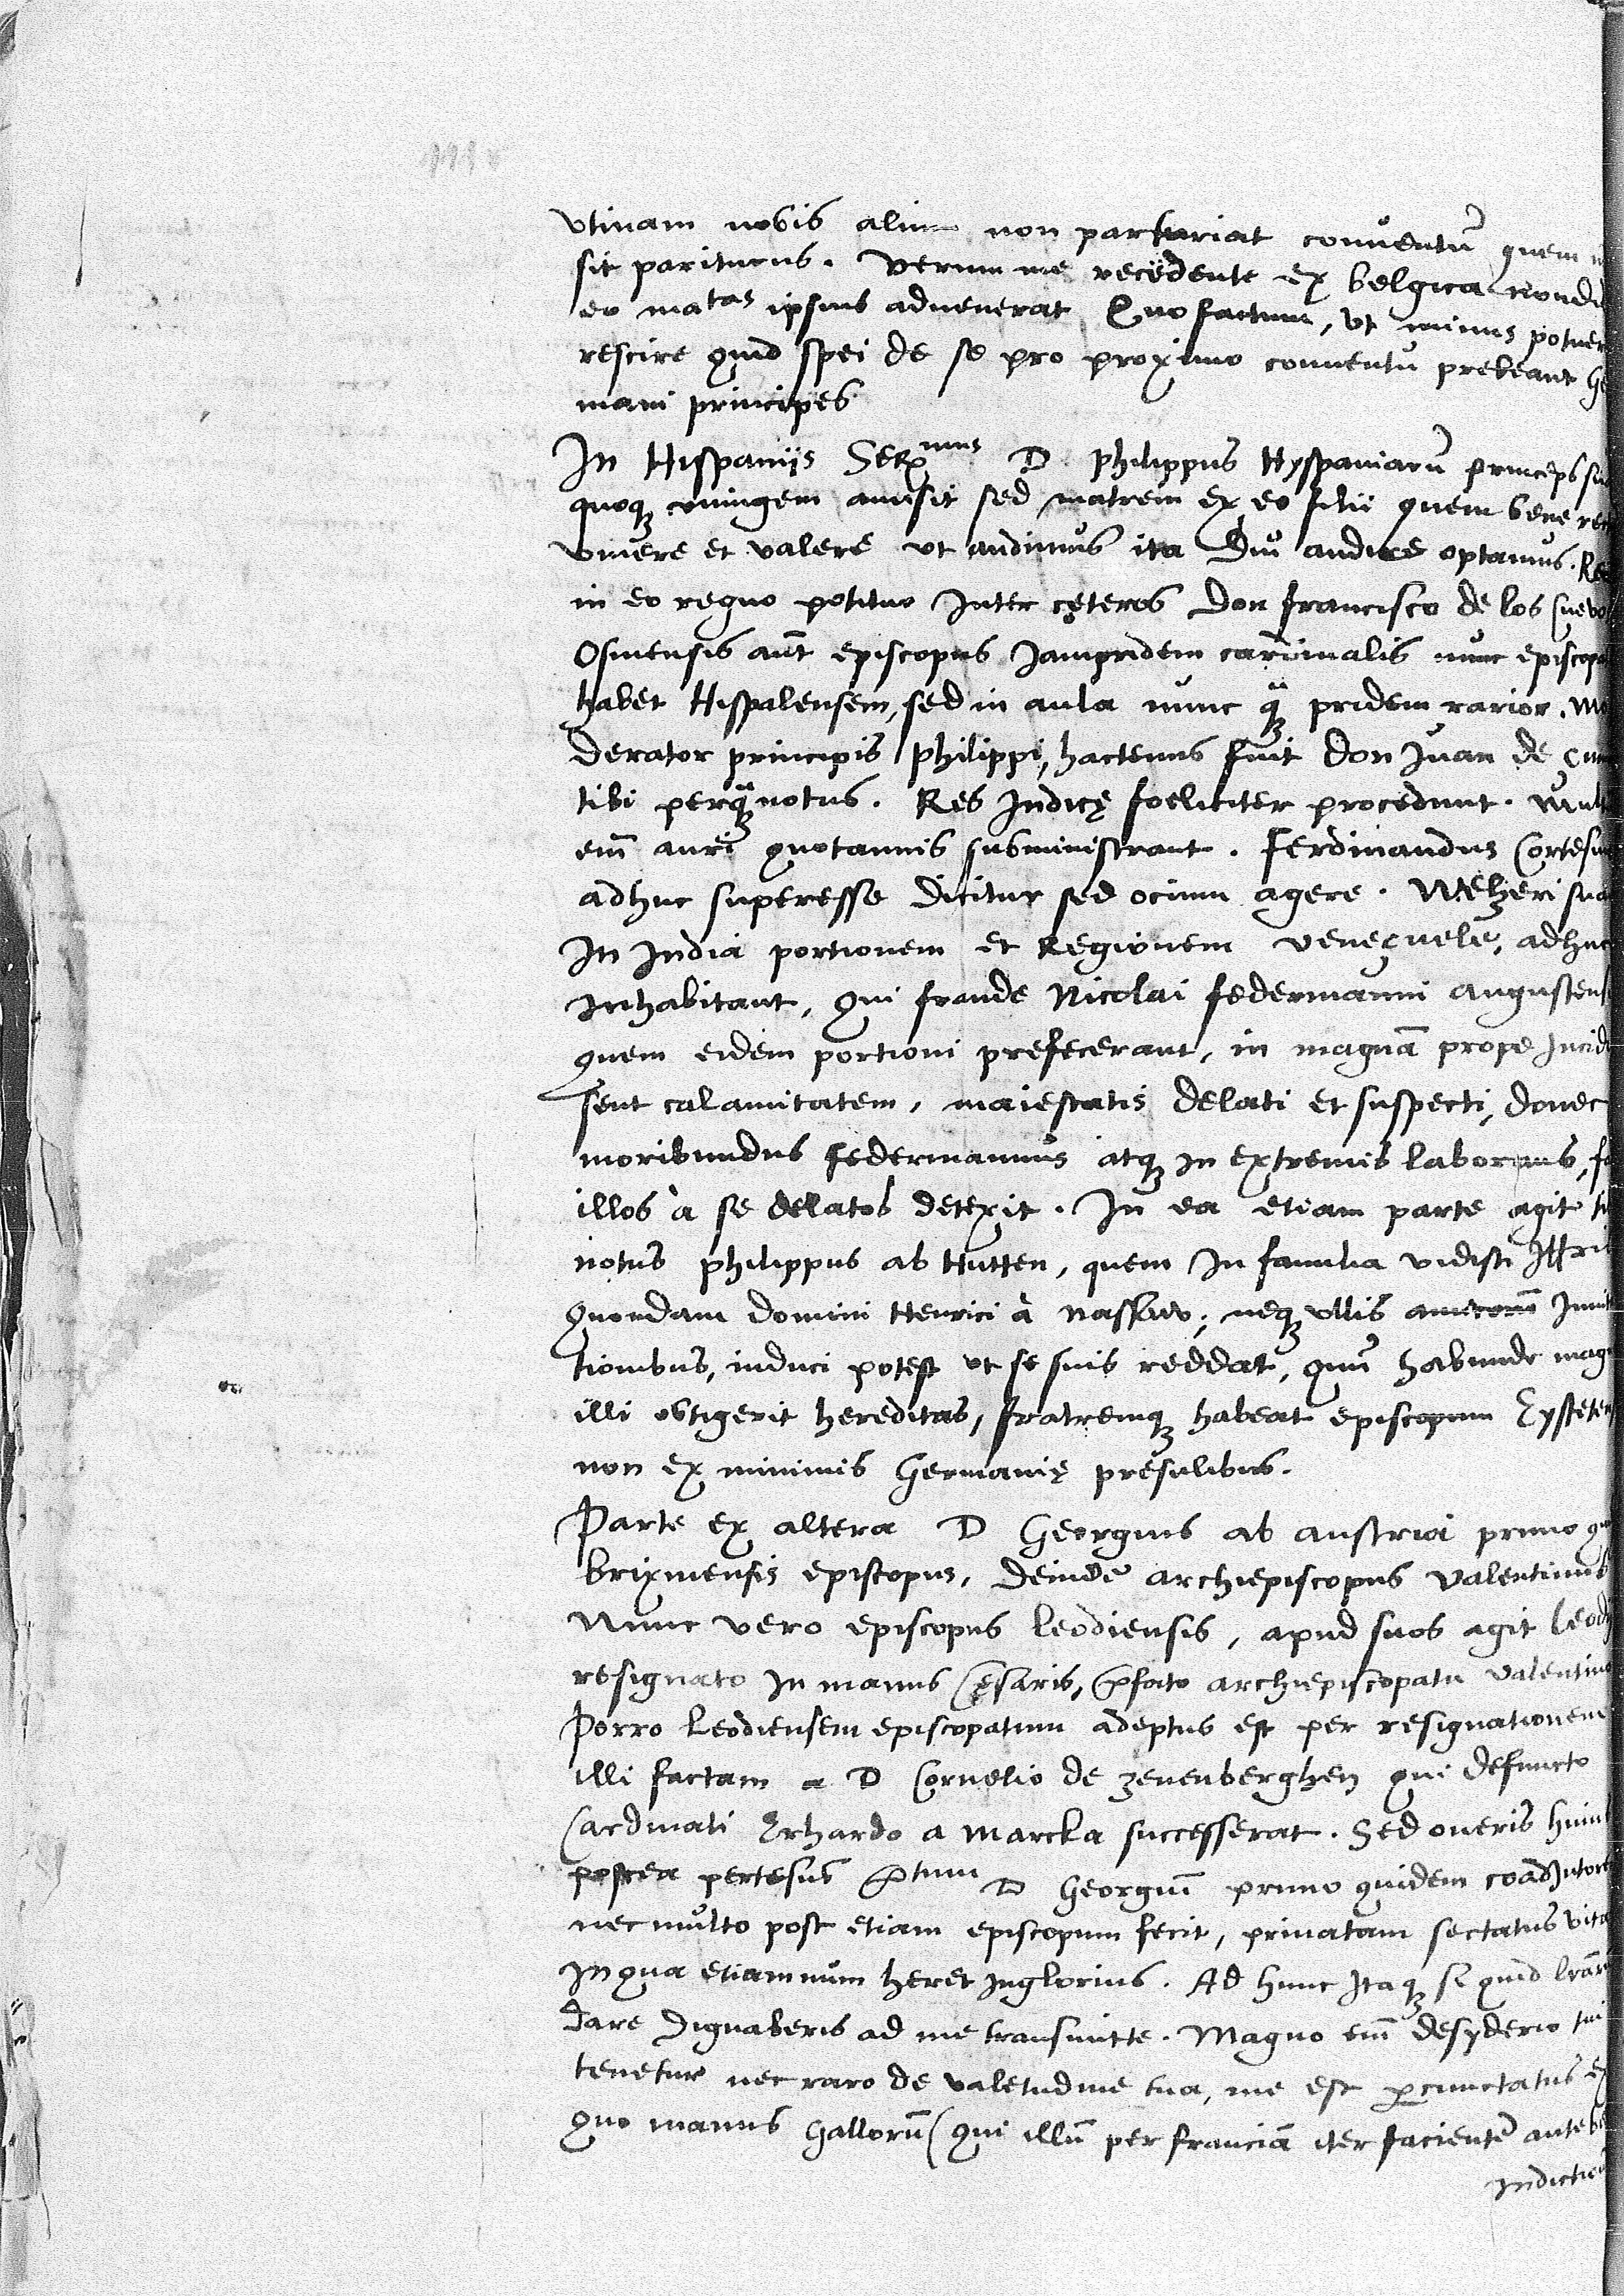 vtinam nobis alium non parturiat conuentū quem
sit pariturus. Verum me recedente ex belgica nondū
eo matas ipsius aduenerat Quo factum, vt minus potuer
rescire quid spei de se pro proximo conuentu prebeant Ge
mani principes
In Hispaniis Serᵐᵘˢ D philippus Hyspaniarū princeps su
quoqȝ coniugem amisit sed matrem ex eo filii quem bene rect
viuere et valere vt audimus ita diu audire optamus.
in eo regno potitur Inter cęteros Don francisco de los Cuevo
Osmensis aūt episcopus Jampridem cardinalis nunc episcopa
habet Hispalensem, sed in aula nunc qȝ pridem rarior. Mo
derator principis philippi, hactenus fuit Don Juan de çun
tibi perqȝ notus. Res Indicę foeliciter procedunt. Mult
em̄ auri quotannis subministrant. Ferdinandus Cortesiu
adhuc superesse dicitur sed ocium agere. Welzeri sua
In India portionem et Regionem veneçuelę, adhuc
Inhabitant, qui fraude Nicolai federmanni augustens
quem eidem portioni prefecerant, in magnā prope Incidi
sent calamitatem, maiestatis delati et suspecti, donec
moribundus federmannus atqȝ in extremis laborans, fa
illos à se delatos detexit. In ea etiam parte agit ti
notus philippus ab Hutten, quem In familia vidisti
Quondam domini Henrici à Nassaw; neqȝ vllis amicorū Inuita
tionibus, induci potest vt se suis reddat, quū habunde mag
illi obtigerit hereditas, fratremqȝ habeat episcopum Eysteten
non ex minimis Germanię presulibus.
Parte ex altera D Georgius ab austria primo qu
brixinensis episcopus, deinde archiepiscopus Valentinus
Nunc vero episcopus Leodiensis, apud suos agit Leod
resignato In manus Cęsaris, p̄fato archiepiscopatu Valentino
Porro Leodiensem episcopatum adeptus est per resignationem
illi factam a D Cornelio de zeuenberghen qui defuncto
Cardinali Erhardo a Marcka successerat. Sed oneris huius
postea pertesus p̄tum D Georgiū primo quidem coadJutore
nec multo post etiam episcopum fecit, priuatam sectatus vita
In qua etiamnum heret Inglorius. Ad hunc Itaqȝ si quid lrarū
dare dignaberis ad me transmitte. Magno em̄ desyderio tui
tenetur nec raro de valetudine tua, me est percunctatus ex
quo manus Gallorū (qui illū per franciā iter facientē ante be
Indictio